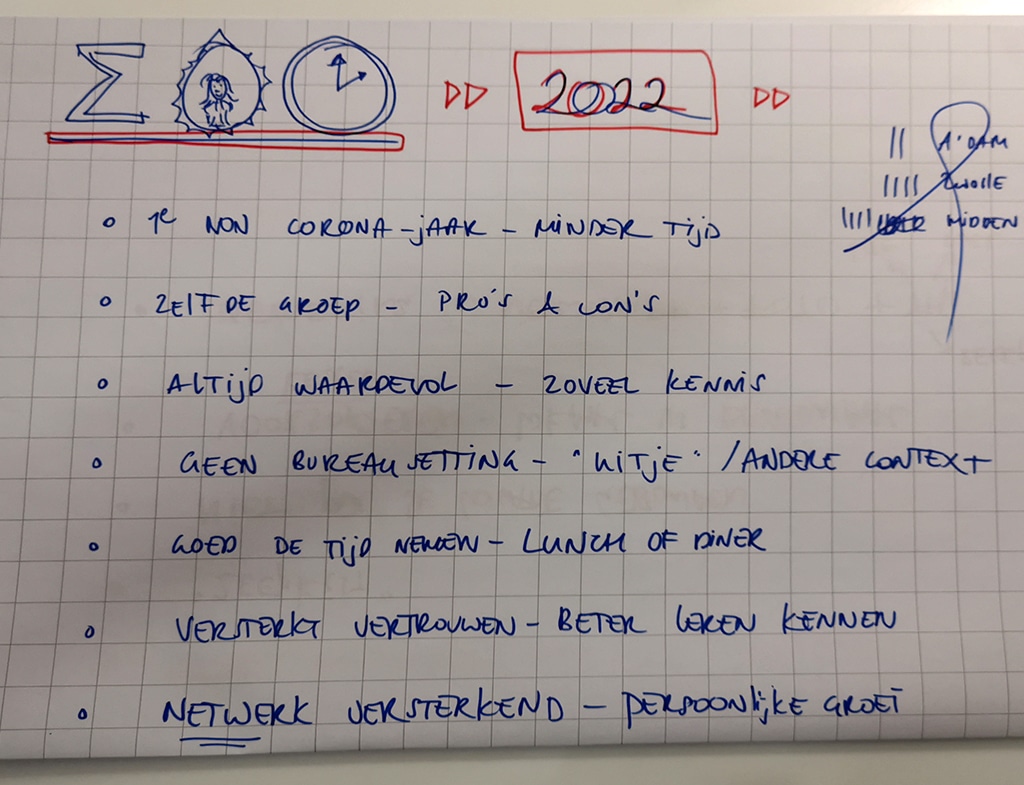 Σ
▷▷ 2022 ▷▷
|| A'DAM
|||| ZWOLLE
|||| MIDDEN
• 1e NON CORONA-JAAR - MINDER TIJD
• ZELFDE GROEP - PRO'S & CON'S
• ALTIJD WAARDEVOL - ZOVEEL KENNIS
• GEEN BUREAUSETTING - "UITJE" / ANDERE CONTEXT
• GOED DE TIJD NEMEN - LUNCH OF DINER
• VERSTERKT VERTROUWEN - BETER LEREN KENNEN
• NETWERK VERSTERKEND - PERSOONLIJKE GROEI